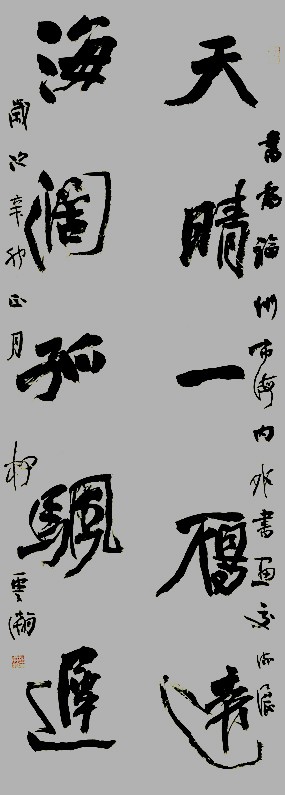 書為福州市海内外書画交流展
天晴一雁遠
海闊孤颿遲
歲次辛卯正月柯雲瀚